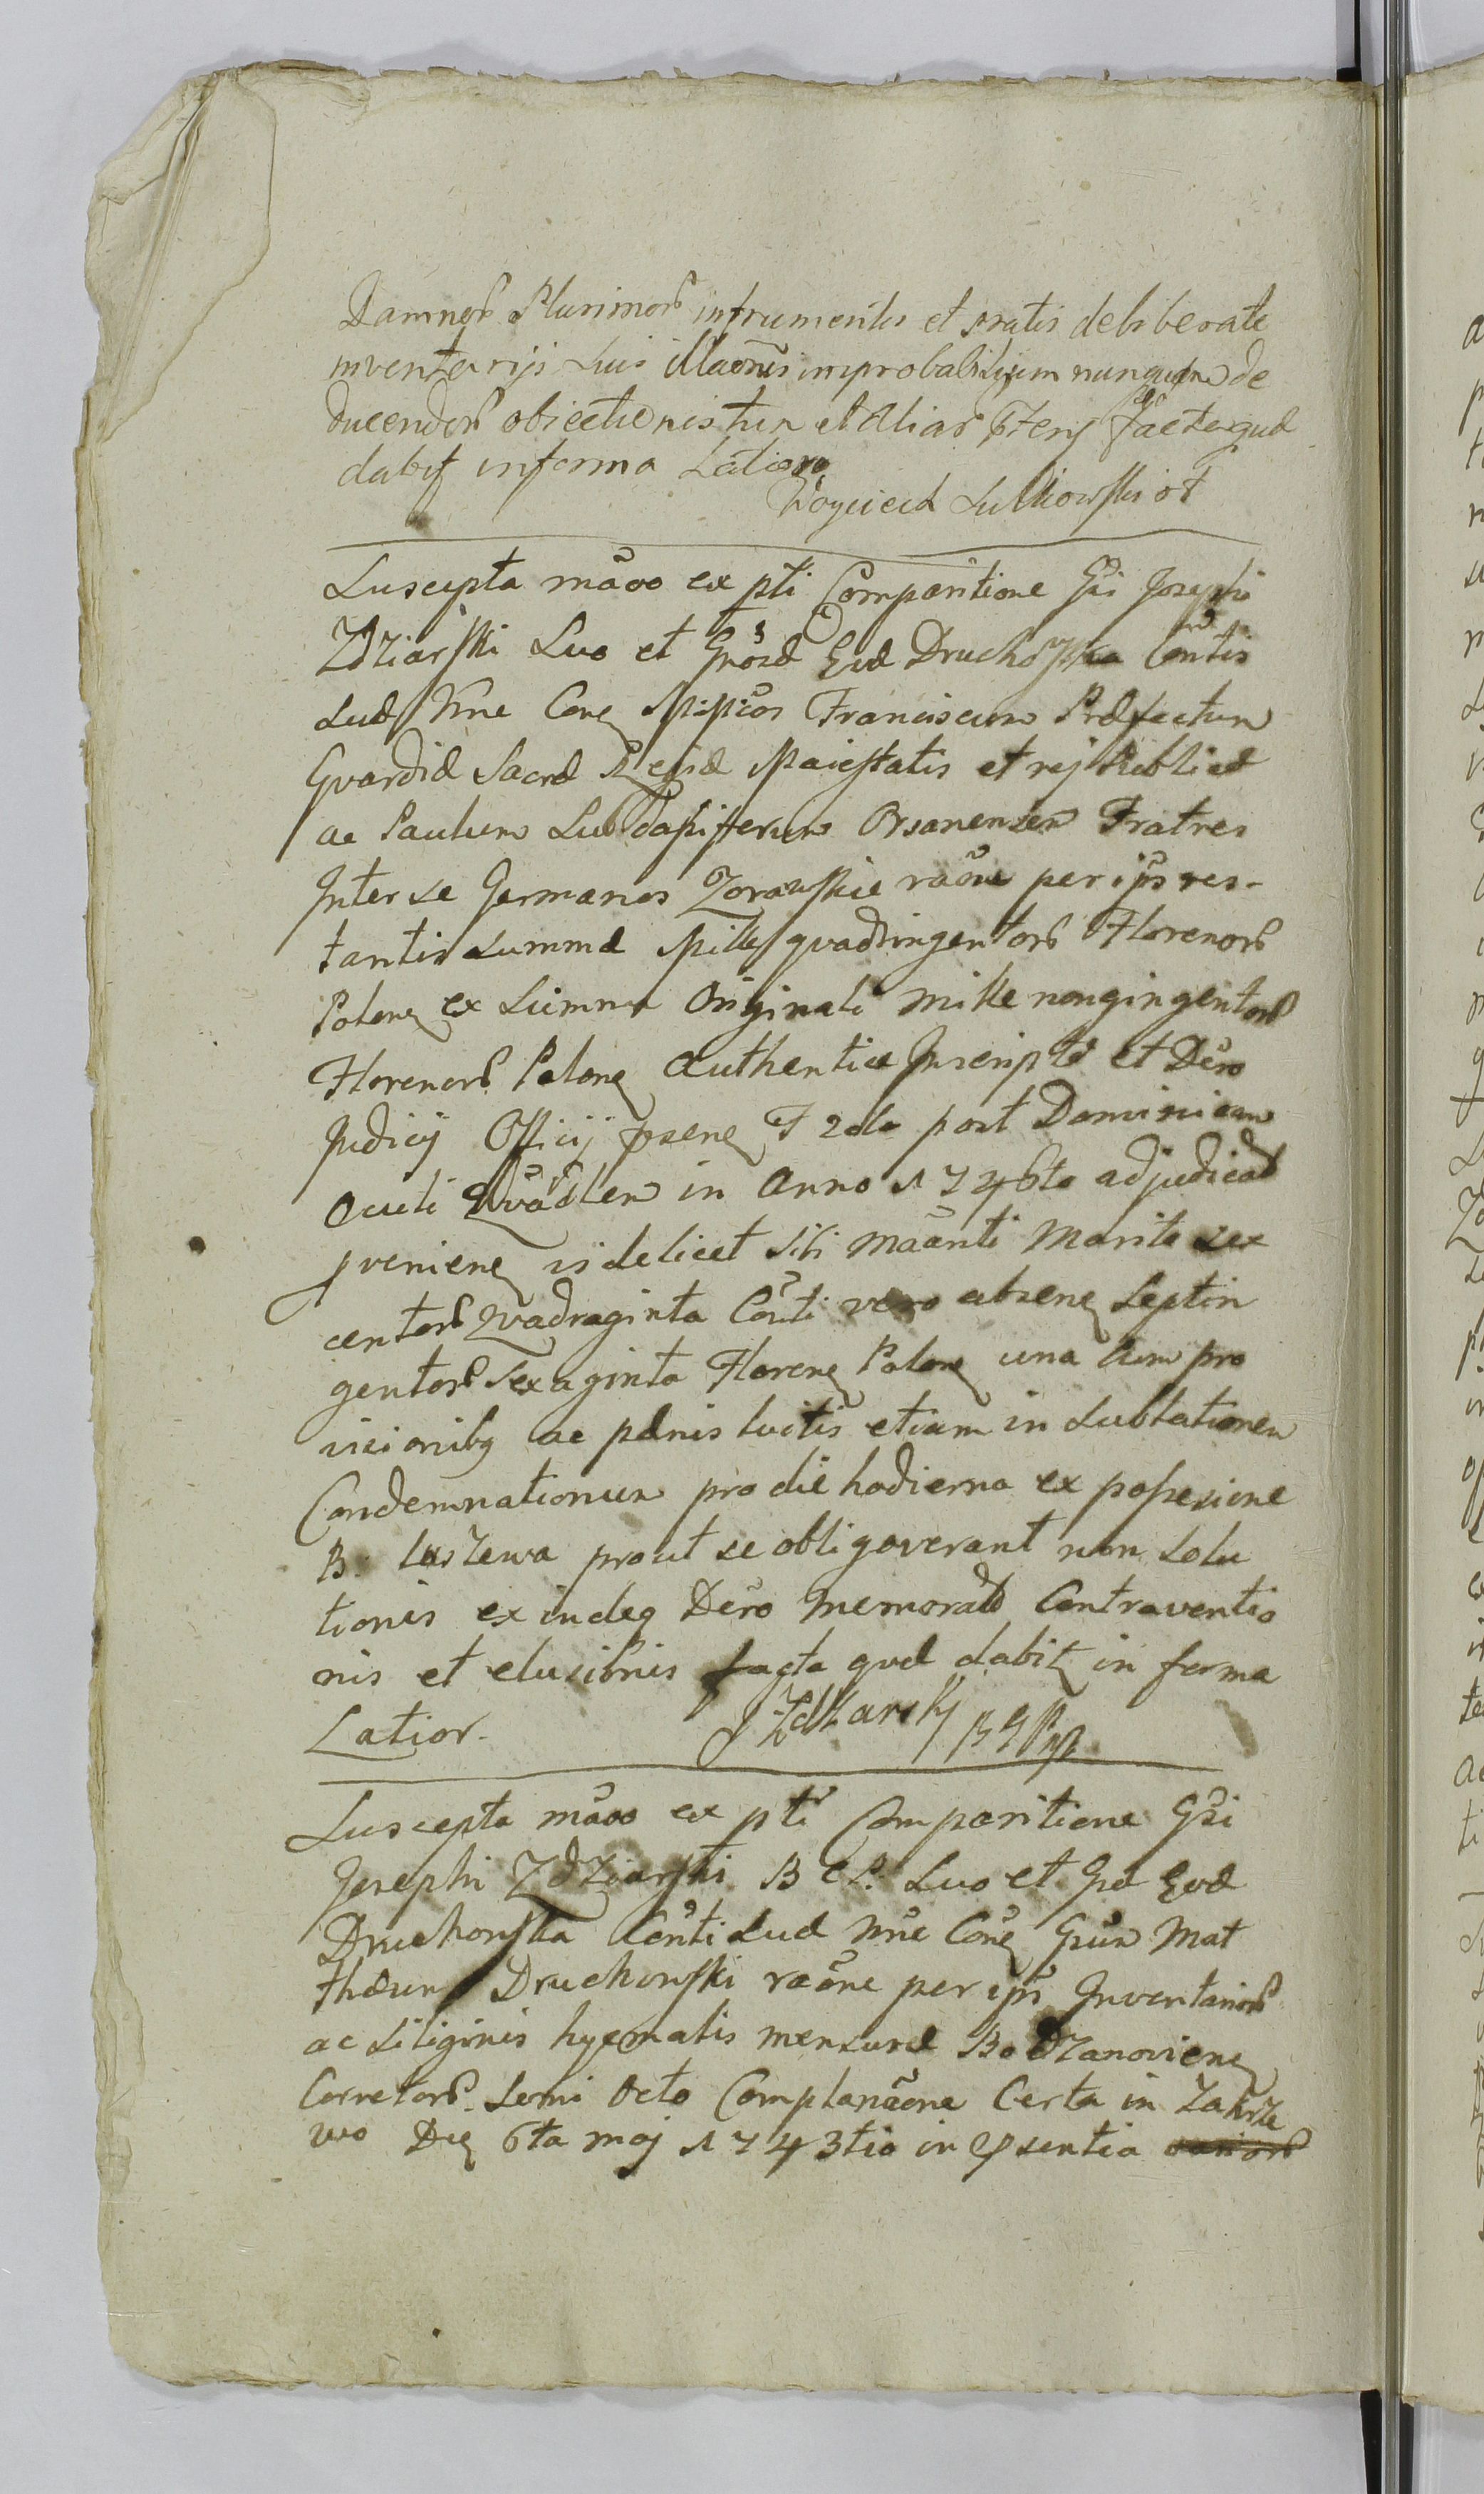 Damnor Plurimor intrumentis et pratis deliberate
inventarijs suis illaõnis improbabilium nunquam de
ducendor obiectionis hun et aliar
dabit in forma Latiori
Woyciech Sulkowski
Suscepta mãoo ex pti Comparitione Gsi Josephi
Zdziarski Suo et Gnosæ Evæ Druchowska Contis
suæ Nne Cone Mfficos Franciscum Præfectum
Gvardiæ Sacræ Regiæ Maiestatis et rej Publicæ
ac Paulum Subdapiferum Orsanensem Fratres
Inter se Germanos Zorawskie raõne per ipos res-
tantis summæ Mille quadringentor Florenor
Polone ex Summa Originali mille nongingentor
Florenor Polone Authentice Inscriptæ et Dẽro
Judicij Officij psene F 2da post Dominicam
Oculi Qvadlem in Anno 1746to adjudicatæ
pveniene videlicet sibi mãanti Marito sex
centor Qvadraginta Conti vero absene Septin
gentor Sexaginta Florene Polone una cum pro
visionibq ac pænis luitis etiam in sublationem
Condemnationum pro die hodierna ex possesione
B. Laszewa prout se obligaverant non solu
tionis exindeq Dẽro memorato Contraventio
nis et elusionis facta qvæ dabit in forma
Latior.
J Zdziarsky B G P mp
Suscepta mãoo ex pti Comparitione Gsi
Josephi Zdziarski B C P. Suo et Gsæ Evæ
Druchowska Conti suæ Nne Cone Gsum Mat
thæum Druchowski raõne per ipm Inventarior
ac siliginis hyemalis mensuræ Bodzanoviene
Coretor. Semi Octo Complanãone Certa in Zakrze
wo Die 6ta maj 1743tio in psentia varior